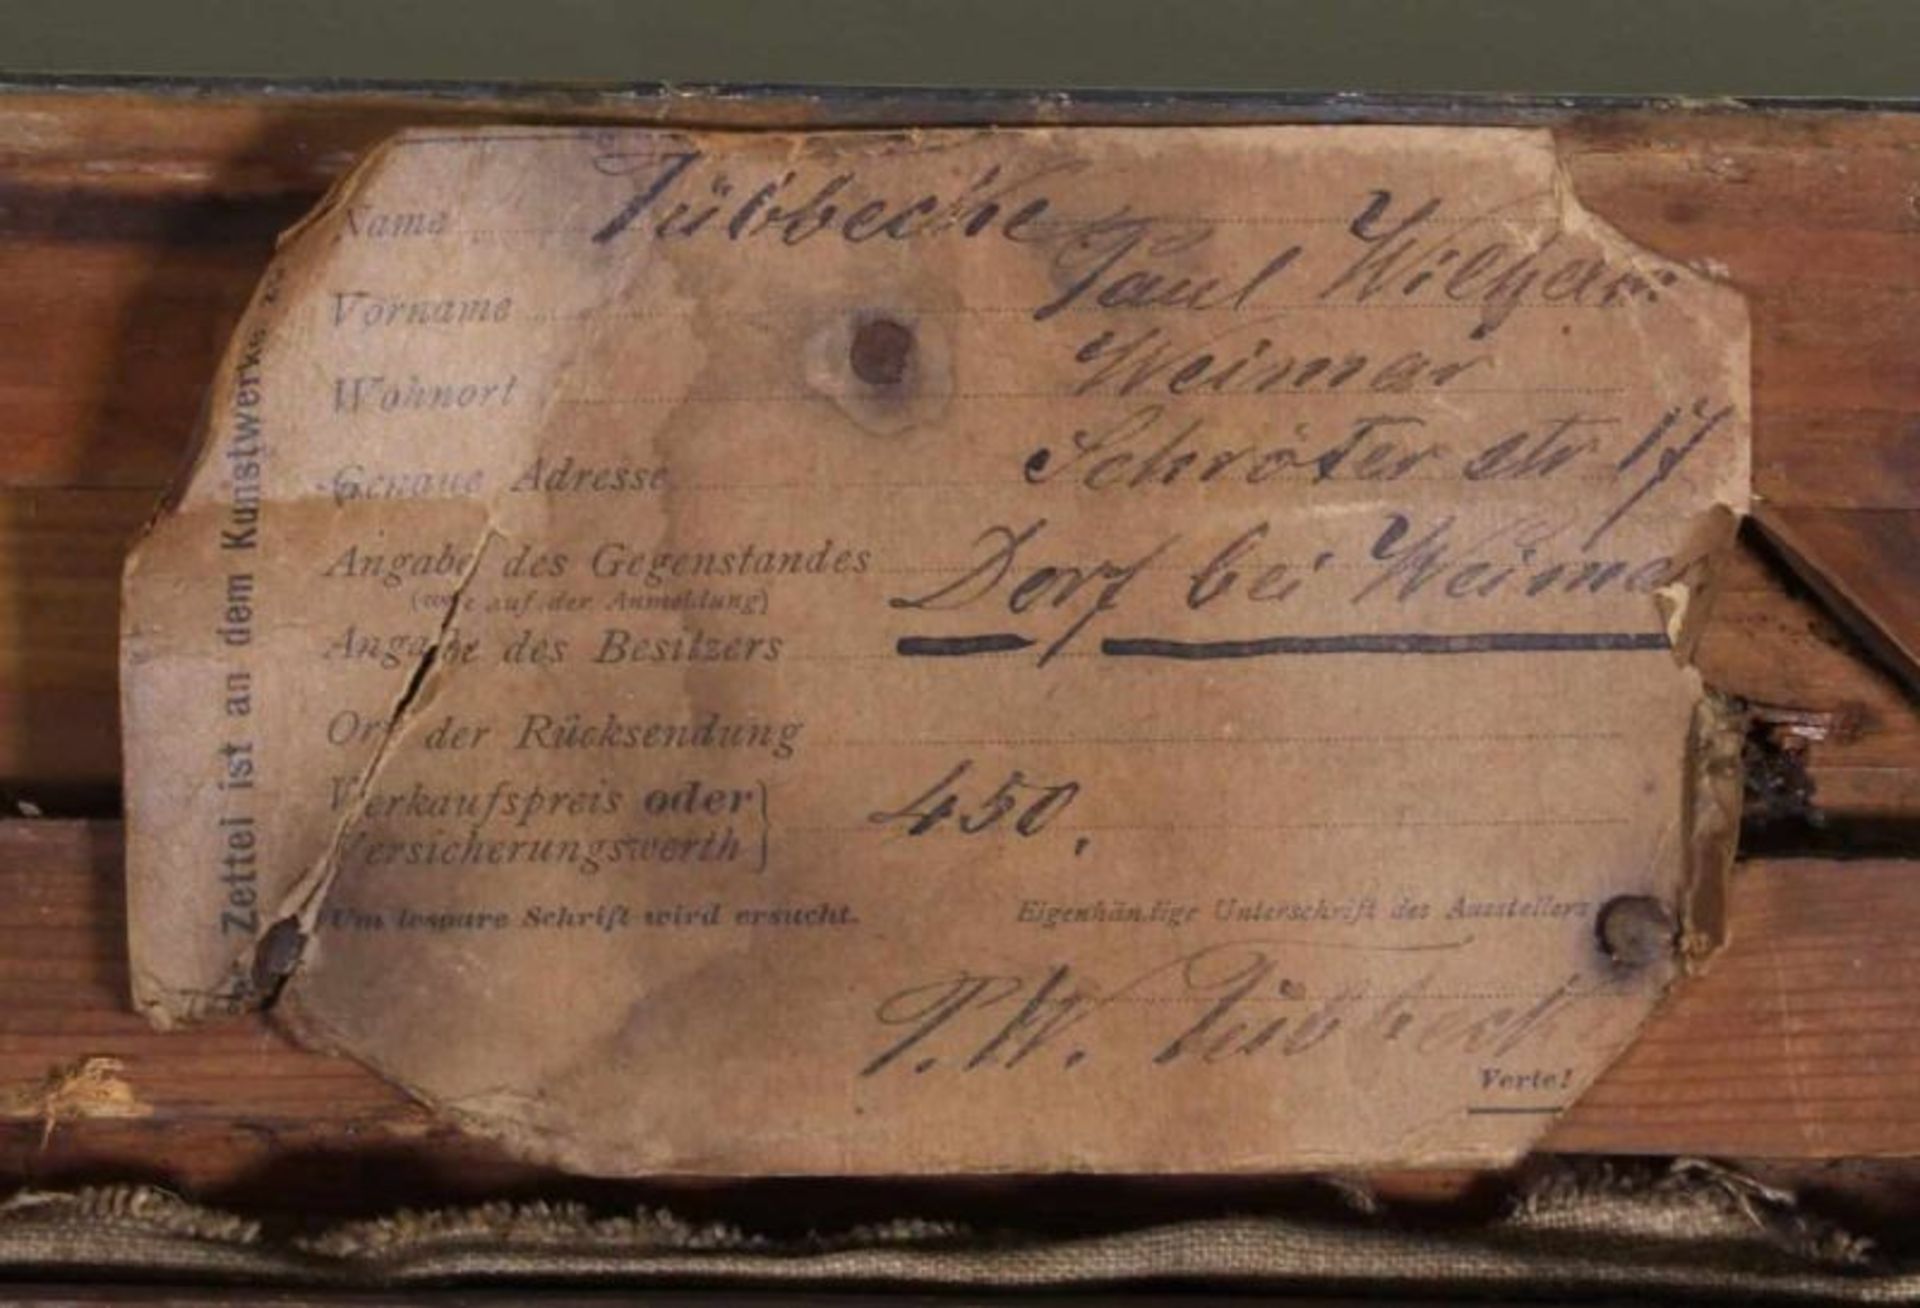 Name Tübbecke
Vorname Paul Wilhelm
Wohnort Weimar
Genaue Adresse Schröter str 17
Angabe des Gegenstandes Dorf bei Weimar
(wie auf der Anmeldung)
Angabe des Besitzers
Ort der Rücksendung
Verkaufspreis oder
Versicherungswerth } 450.
Um lesbare Schrift wird ersucht.
Eigenhändige Unterschrift des Ausstellers
P. W. Tübbecke
Verte!
Zettel ist an dem Kunstwerke